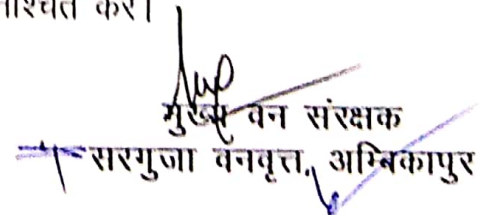 करें।
मुख्य वन संरक्षक
सरगुजा वनवृत्त, अम्बिकापुर